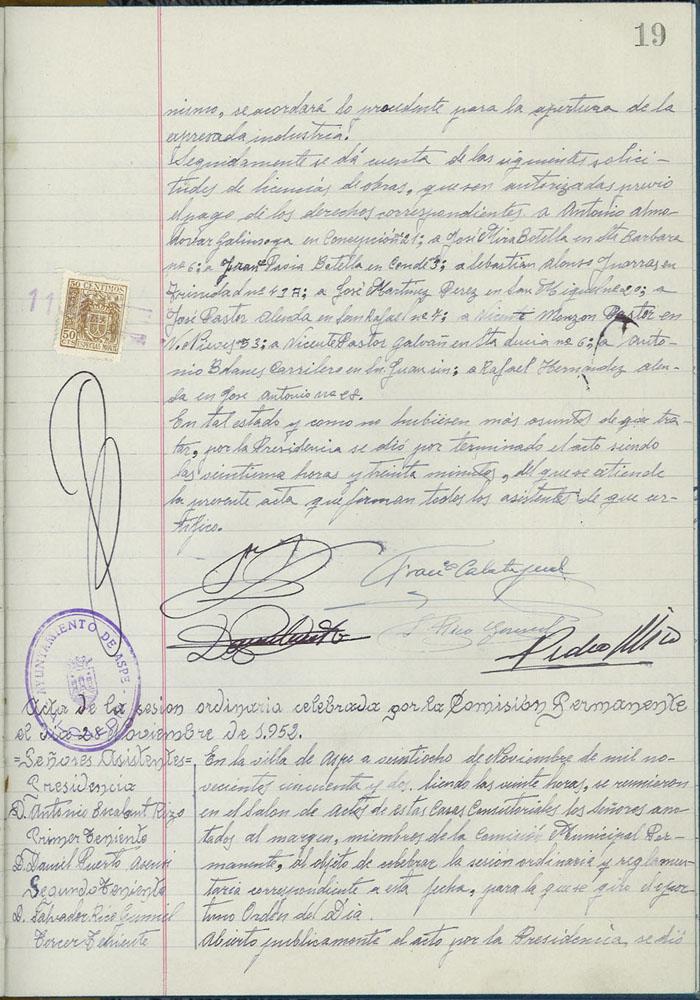 19
mismo, se acordará lo procedente para la apertura de la
expresada industria.
Seguidamente se dá cuenta de las siguientes solici-
tudes de licencias de obras, que son autorizadas previo
el pago de los derechos correspondientes a Antonio Almo-
dovar Galinsoga en Concepción 21; a José Mira Botella en Sta Barbara
nº 6; a Franco Pavia Botella en Conde 3; a Sebastián Alonso en
Trinidad nº 43 A; a José Martínez Perez en San Miguel nº 20; a
José Pastor Alenda en San Rafael nº 7; a Vicente Monzon Pastor en
N. Nieves 53; a Vicente Pastor Galvañ en Sta Lucia nº 6; a Anto-
nio Blanes Carrilero en San Juan sn; a Rafael Hernández Alen-
da en José Antonio nº 28.
En tal estado y como no hubiesen más asuntos de que tra-
tar, por la Presidencia se dió por terminado el acto siendo
las veintiuna horas y treinta minutos, del que se extiende
la presente acta que firman todos los asistentes de que cer-
tifico.
50 CENTIMOS
50
CTS
Franco Calatayud
Pedro Mira
AYUNTAMIENTO DE ASPE
Acta de la sesion ordinaria celebrada por la Comisión Permanente
el dia 28 Noviembre de 1.952.
=Señores Asistentes=
Presidencia
D. Antonio Escalant Rizo
Primer Teniente
D. Daniel Puerto Asensi
Segundo Teniente
D. Salvador Rico Gumiel
Tercer Teniente
En la villa de Aspe a veintiocho de Noviembre de mil no-
vecientos cincuenta y dos. Siendo las veinte horas, se reunieron
en el Salon de Actos de estas Casas Consistoriales los Señores ano-
tados al margen, miembros de la Comisión Municipal Per-
manente, al objeto de celebrar la sesión ordinaria y reglamen-
taria correspondiente a esta fecha, para la que se giró el opor-
tuno Orden del Dia.
Abierto publicamente el acto por la Presidencia, se dió